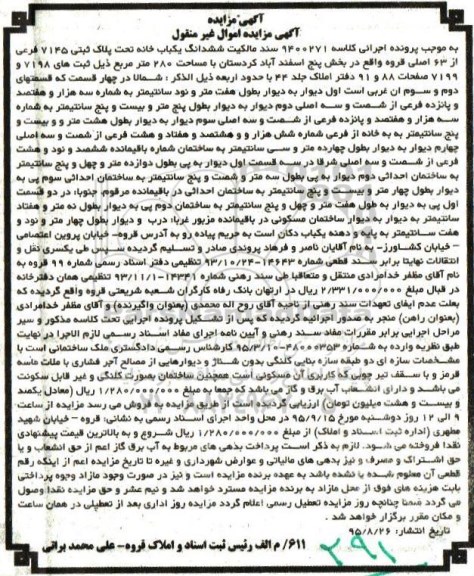 آگهی مزایده
آگهی مزایده اموال غیر منقول
به موجب پرونده اجرائی کلاسه 9400271 سند مالکیت ششدانگ یکباب خانه تحت پلاک ثبتی 7145 فرعی
از 63 اصلی قروه واقع در بخش پنج اسفند آباد کردستان با مساحت 280 متر مربع ذیل ثبت های 7198 و
7199 صفحات 88 و 91 دفتر املاک جلد 44 با حدود اربعه ذیل الذکر: شمالا در چهار قسمت که قسمتهای
دوم و سوم ان غربی است اول دیوار به دیوار بطول هفت متر و نود سانتیمتر به شماره سه هزار و هفتصد
و پانزده فرعی از شصت و سه اصلی دوم دیوار به دیوار بطول پنج متر و بیست و پنج سانتیمتر به شماره
سه هزار و هفتصد و پانزده فرعی از شصت و سه اصلی سوم دیوار به دیوار بطول هشت متر و بیست و
پنج سانتیمتر به به خانه از فرعی شماره شش هزار و هشتصد و هفتاد و هشت فرعی از شصت و سه اصلی
چهارم دیوار به دیوار بطول چهارده متر و سی سانتیمتر به ساختمان شماره باقیمانده ششصد و نود و هشت
فرعی از شصت و سه اصلی شرقا در سه قسمت اول دیوار به پی بطول دوازده متر و چهل و پنج سانتیمتر
به ساختمان احداثی دوم دیوار به پی بطول سه متر و شصت و پنج سانتیمتر به ساختمان احداثی سوم پی به
دیوار بطول چهار متر و بیست و پنج سانتیمتر به ساختمان احداثی در باقیمانده مرقوم جنوبا: در دو قسمت
اول پی به دیوار به طول هفت متر و چهل و پنج سانتیمتر به ساختمان دوم پی به دیوار بطول نه متر و هفتاد
سانتیمتر به دیوار به دیوار ساختمان مسکونی در باقیمانده مزبور غربا: درب و دیوار بطول چهار متر و نود و
هفت سانتیمتر به پیاده و دهنه یکباب دکان است به حریم پیاده رو به آدرس قروه- خیابان پروین اعتصامی
- خیابان کشاورز- به نام آقایان ناصر و فرهاد پروندی صادر و تسلیم گردیده سپس طی یکسری نقل و
انتقالات نهایتا برابر سند قطعی شماره 14643-93/10/24 تنظیمی دفتر اسناد رسمی شماره 99 قروه به
نام آقای مظفر خدامرادی منتقل و متعاقبا طی سند رهنی شماره 14341-93/11/1 تنظیمی همان دفترخانه
در قبال مبلغ 2/331/000/000 ریال در ارتهان بانک رفاه کارگران شعبه شریعتی قروه واقع گردیده که
بعلت عدم ایفای تعهدات سند رهنی از ناحیه آقای روح اله محمدی (بعنوان واگیرنده) و آقای مظفر خدامرادی
(بعنوان راهن) منجر به صدور اجرائیه گردیده که پس از تشکیل پرونده اجرایی تحت کلاسه مذکور و سیر
مراحل اجرایی برابر مقررات مفاد سند رهنی و آیین نامه اجرای مفاد اسناد رسمی لازم الاجرا در نهایت
طبق نظریه وارده به شماره کارشناس رسمی دادگستری ملک ساختمانی است با
مشخصات سازه ای دو طبقه سازه بنایی کلنگی بدون شناژ و دیوارهایی از مصالح آجر فشاری با ملات ماسه
قرمز و با سقف تیر چوبی که کاربری آن مسکونی است همچنین ساختمان بصورت کلنگی و غیر قابل سکونت
می باشد و دارای انشعاب آب برق و گاز می باشد که جمعا به مبلغ 1/280/000/000 ریال (معادل یکصد
و بیست و هشت میلیون تومان) ارزیابی گردیده است از طریق مزایده به فروش می رسد مزایده از ساعت
9 الی 12 روز دوشنبه مورخ 95/9/15 در محل واحد اجرای اسناد رسمی به نشانی: قروه - خیابان شهید
مطهری (اداره ثبت اسناد و املاک) از مبلغ 1/280/000/000 ریال شروع و به بالاترین قیمت پیشنهادی
نقدا فروخته می شود. لازم به ذکر است پرداخت بدهی های مربوط به آب برق گاز اعم از حق انشعاب و یا
حق اشتراک و مصرف و نیز بدهی های مالیاتی و عوارض شهرداری و غیره تا تاریخ مزایده اعم از اینکه رقم
قطعی آن معلوم شده یا نشده باشد به عهده برنده مزایده است و نیز در صورت وجود مازاد وجوه پرداختی
بابت هزینه های فوق از محل مازاد به برنده مزایده مسترد خواهد شد و نیم عشر و حق مزایده نقدا وصول
می گردد ضمنا چنانچه روز مزایده تعطیل رسمی اعلام گردد مزایده روز اداری بعد از تعطیلی در همان ساعت
و مکان مقرر برگزار خواهد شد.
تاریخ انتشار: 95/8/26
611/ م الف رئیس ثبت اسناد و املاک قروه- علی محمد براتی
291